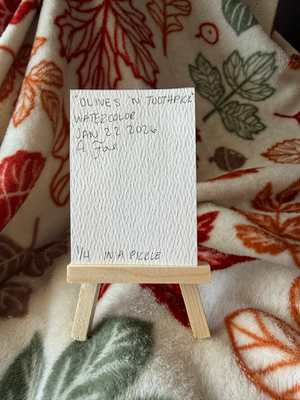 "OLIVES N TOOTHPICK"
WATERCOLOR
JAN 22 2026
1/4 IN A PICKLE